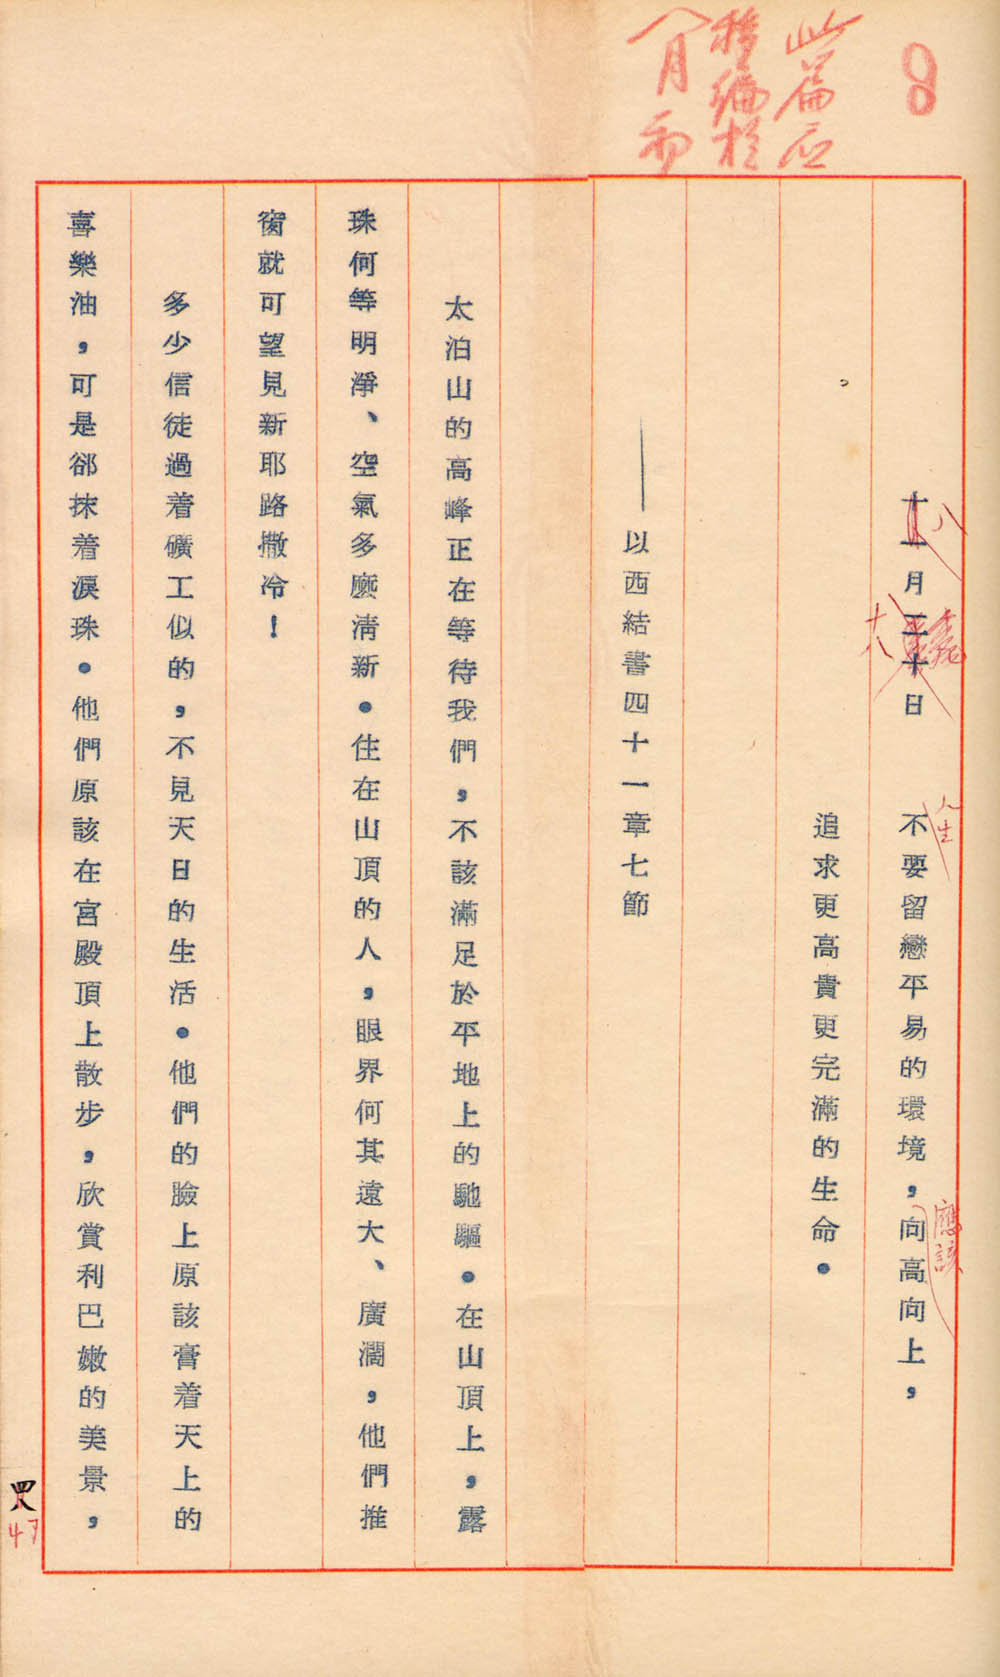 8
此篇應
移編於
八月部
十一月三十日　不要留戀平易的環境，向高向上，
八
十八
人生
應該
追求更高貴更完滿的生命。
——以西結書四十一章七節
太泊山的高峰正在等待我們，不該滿足於平地上的馳驅。在山頂上，露
珠何等明淨、空氣多麼清新。住在山頂的人，眼界何其遠大、廣濶，他們推
窗就可望見新耶路撒冷！
多少信徒過着礦工似的，不見天日的生活。他們的臉上原該膏着天上的
喜樂油，可是郤抹着淚珠。他們原該在宮殿頂上散步，欣賞利巴嫩的美景，
47